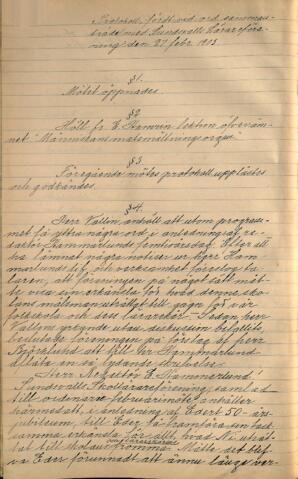 Protokoll, fördt vid ord. samman-
träde med Sundsvalls Lärareföre-
ning den 27 febr. 1903.
§1.
Mötet öppnades.
§2
Höll fr. E. lektion öfver äm-
net "Människans matsmältningsorgan".
§3.
Föregående mötes protokoll upplästes
och godkändes.
§4.
Herr Vallin anhöll att utom program-
met få yttra några ord i anledning af re-
daktör Hammarlunds femtioårsdag. Efter att
ha lämnat några notiser ur herr Ham-
marlunds lif och verksamhet föreslog ta-
laren, att föreningen på något sätt måt-
te visa sin erkänsla för hvad denne sko-
lans målsman uträttat till fromma för vår
folkskola och dess lärarekår. Sedan herr
Vallins yrkande utan diskussion bifallits,
beslutade föreningen på förslag af herr
Björklund att till herr Hammarlund
aflåta en så lydande skrifvelse:
Herr Redaktör E. Hammarlund!
Sundsvalls Skollärareförening, samlad
till ordinarie februarimöte, anhåller
härmedels att, i anledning af Edert 50-års-
jubileum, till Eder få framföra sin tack-
samma erkänsla för allt, hvad Ni uträt-
tat till skolans fromma. Måtte det blif-
va Eder förunnadt att ännu länge ver-